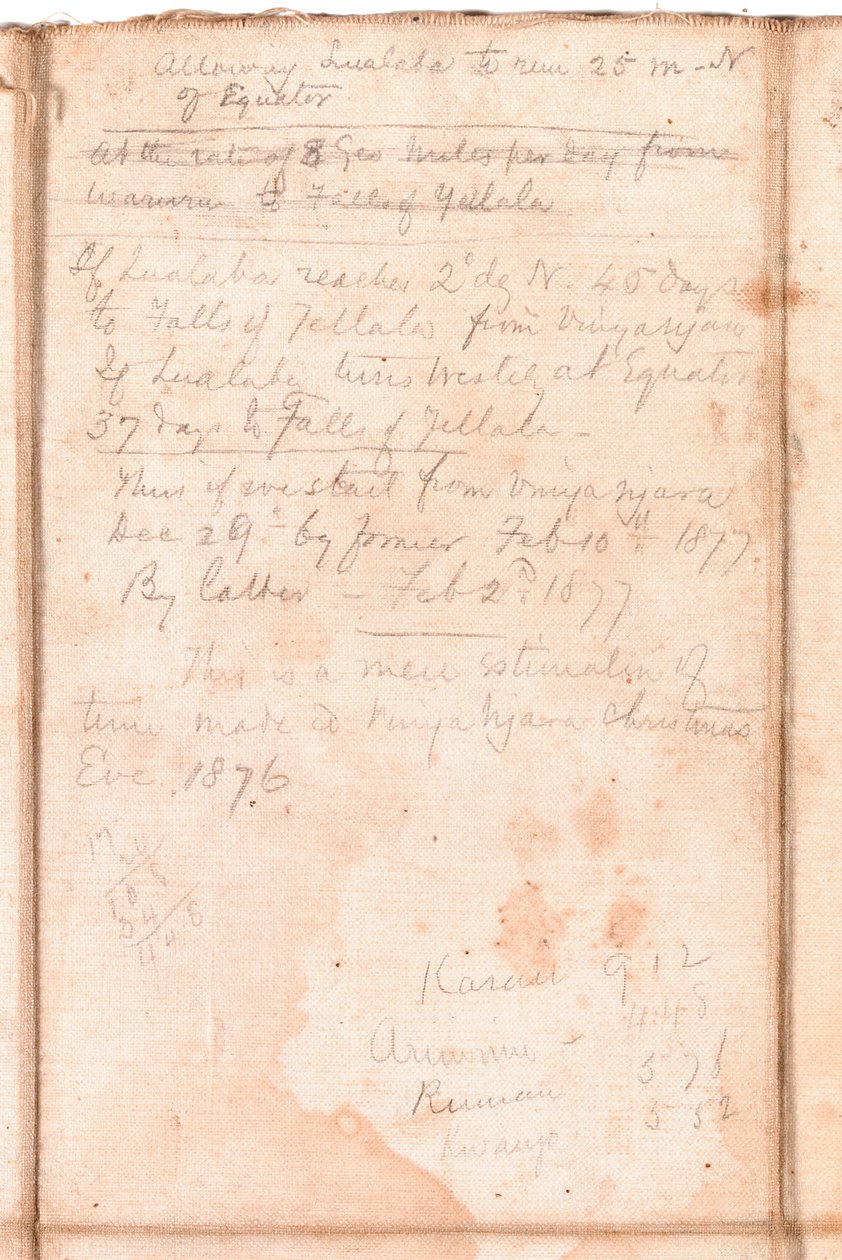 Allowing Lualaba to run 25 m - N
of Equator
At the rate of 8 Geo Miles per day from
to Falls of Yellala
If Lualaba reaches 2° dg N. 45 days
to Falls of Yellala from Vinyanjara
If Lualaba turns Westerly at Equator
37 days to Falls of Yellala -
Thus if we start from Vinya Njara
Dec 29th by former Feb 10th 1877
By latter - Feb 2nd 1877
This is a mere estimation of
time made at Vinya Njara Christmas
Eve. 1876
912
448
Aruwimi 576
552